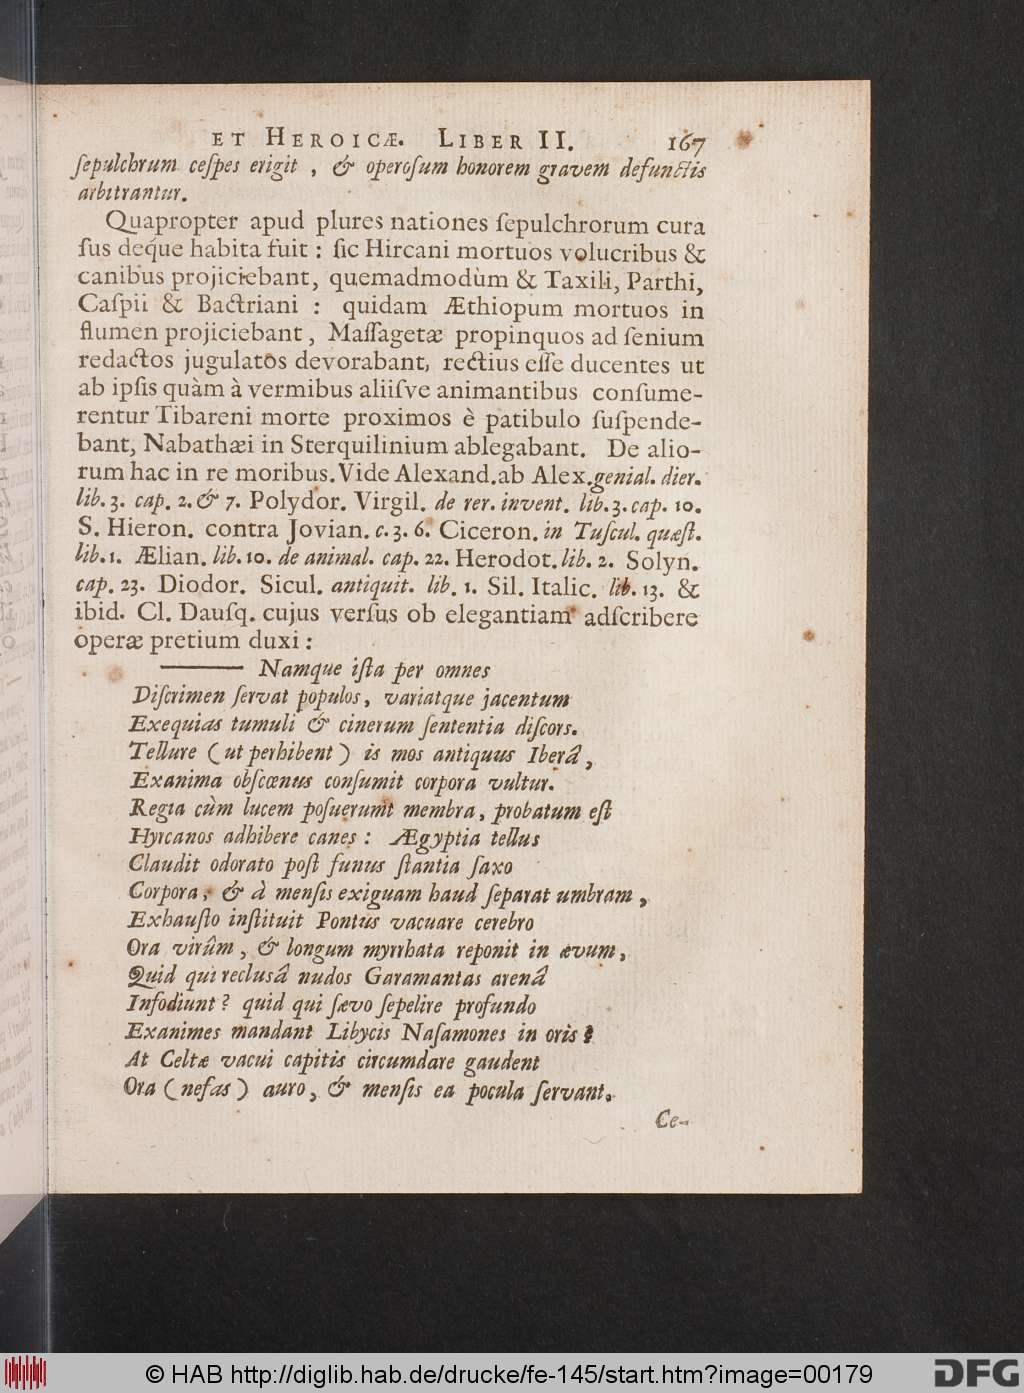 ET HEROICÆ. LIBER II. 167
ſepulchrum ceſpes erigit , & operoſum honorem gravem defunctis
arbitrantur.
Quapropter apud plures nationes ſepulchrorum cura
ſus deque habita fuit : ſic Hircani mortuos volucribus &
canibus projiciebant, quemadmodùm & Taxili, Parthi,
Caſpii & Bactriani : quidam Æthiopum mortuos in
flumen projiciebant , Maſſagetæ propinquos ad ſenium
redactos jugulatos devorabant, rectius eſſe ducentes ut
ab ipſis quàm à vermibus aliiſve animantibus conſume-
rentur Tibareni morte proximos è patibulo ſuſpende-
bant, Nabathæi in Sterquilinium ablegabant. De alio-
rum hac in re moribus. Vide Alexand. ab Alex. genial. dier.
lib. 3. cap. 2. & 7. Polydor. Virgil. de rer. invent. lib. 3. cap. 10.
S. Hieron. contra Jovian. c. 3. 6. Ciceron. in Tuſcul. quæſt.
lib. 1. Ælian. lib. 10. de animal. cap. 22. Herodot. lib. 2. Solyn.
cap. 23. Diodor. Sicul. antiquit. lib. 1. Sil. Italic. lib. 13. &
ibid. Cl. Dauſq. cujus verſus ob elegantiam adſcribere
operæ pretium duxi :
——— Namque iſta per omnes
Diſcrimen ſervat populos, variatque jacentum
Exequias tumuli & cinerum ſententia diſcors.
Tellure ( ut perhibent ) is mos antiquus Iberâ ,
Exanima obſcœnus conſumit corpora vultur.
Regia cùm lucem poſuerunt membra, probatum eſt
Hyrcanos adhibere canes : Ægyptia tellus
Claudit odorato poſt funus ſtantia ſaxo
Corpora, & à menſis exiguam haud ſeparat umbram ,
Exhauſto inſtituit Pontus vacuare cerebro
Ora virûm , & longum myrrhata reponit in ævum,
Quid qui reclusâ nudos Garamantas arenâ
Infodiunt ? quid qui ſævo ſepelire profundo
Exanimes mandant Libycis Naſamones in oris ?
At Celtæ vacui capitis circumdare gaudent
Ora ( nefas ) auro, & menſis ea pocula ſervant.
Ce-
© HAB http://diglib.hab.de/drucke/fe-145/start.htm?image=00179
DFG